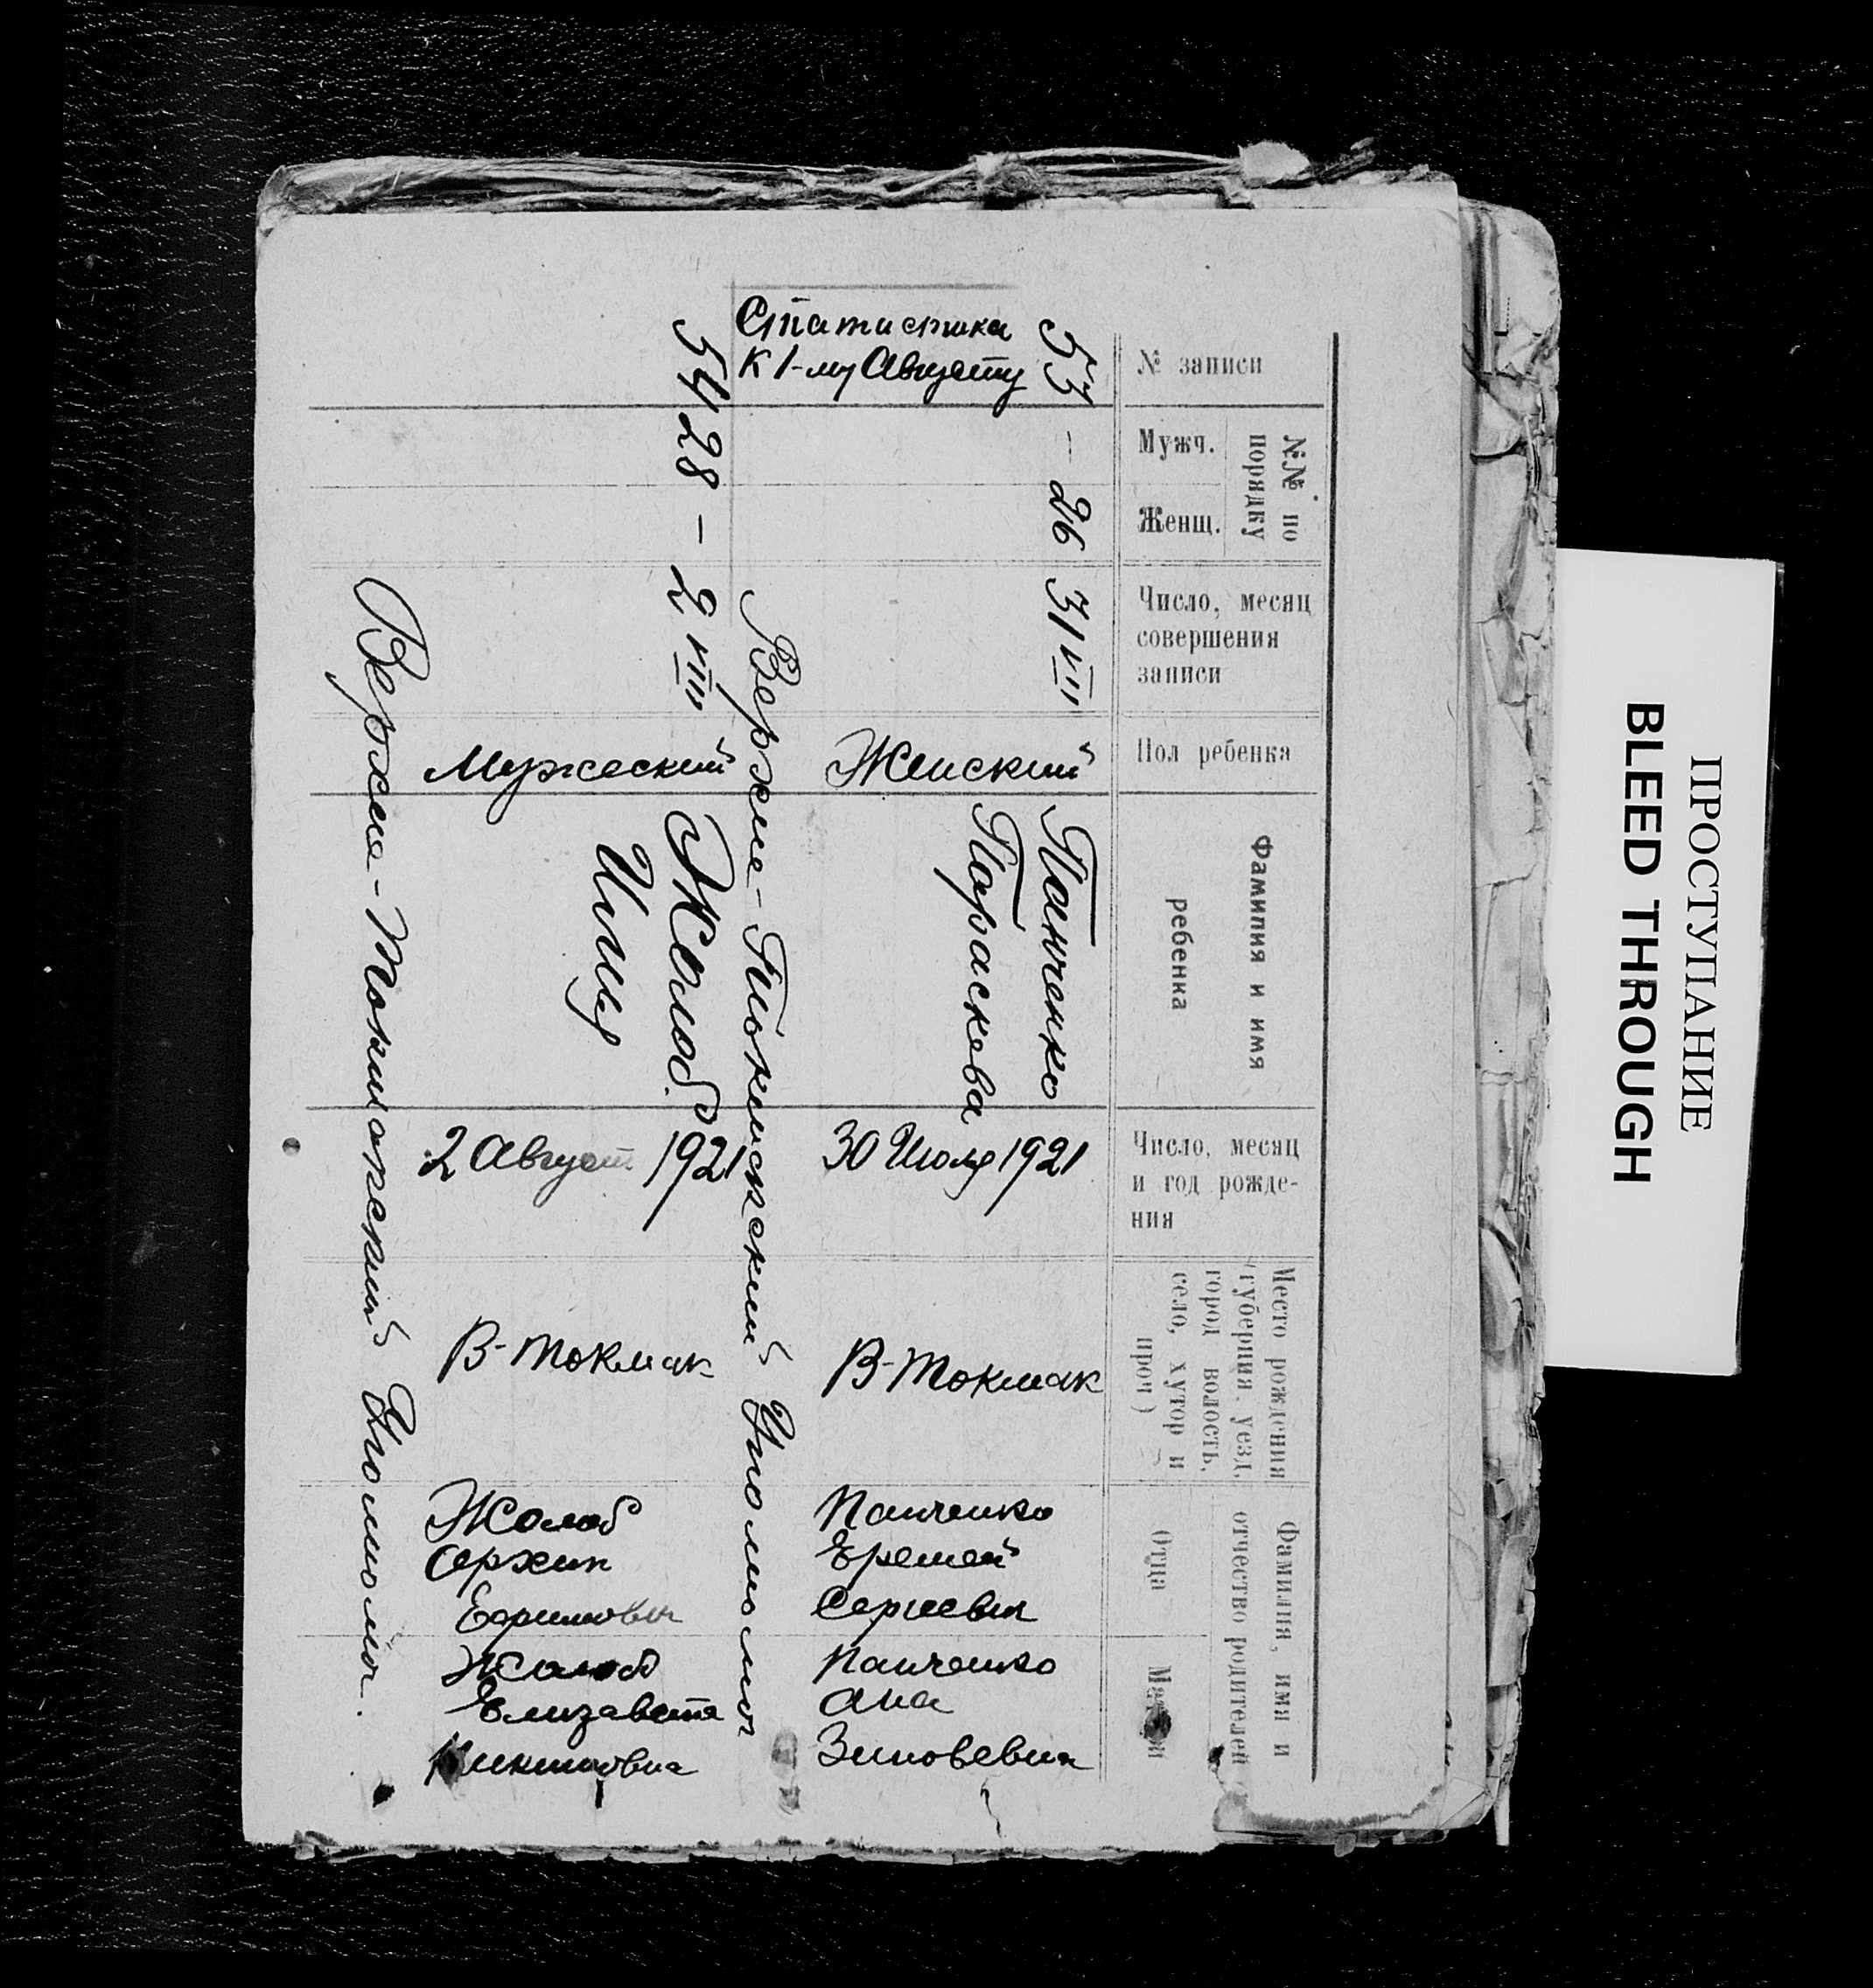 № записи
№№ по
порядку
Мужч.
Женщ.
Число, месяц
совершения
записи
Пол ребенка
Фамилия и имя
ребенка
Число, месяц
и год рожде-
ния
Место рождения
(губерния, уезд,
город волость,
село, хутор и
проч)
Фамилия, имя и
отчество родителей
Отца
53
-
26
31 VIII
Женский
Панченко
Параскева
30 Июля 1921
В-Токмак
Панченко
Еремей
Сергеевич
Панченко
Ана
Зиновевна
Статистика
к 1-му Августу
54
28
-
2 VIII
Мужеский
Жолоб
Илия
2 Август 1921
В-Токмак
Жолоб
Ефимович
Жолоб
Елизавета
ПРОСТУПАНИЕ
BLEED THROUGH